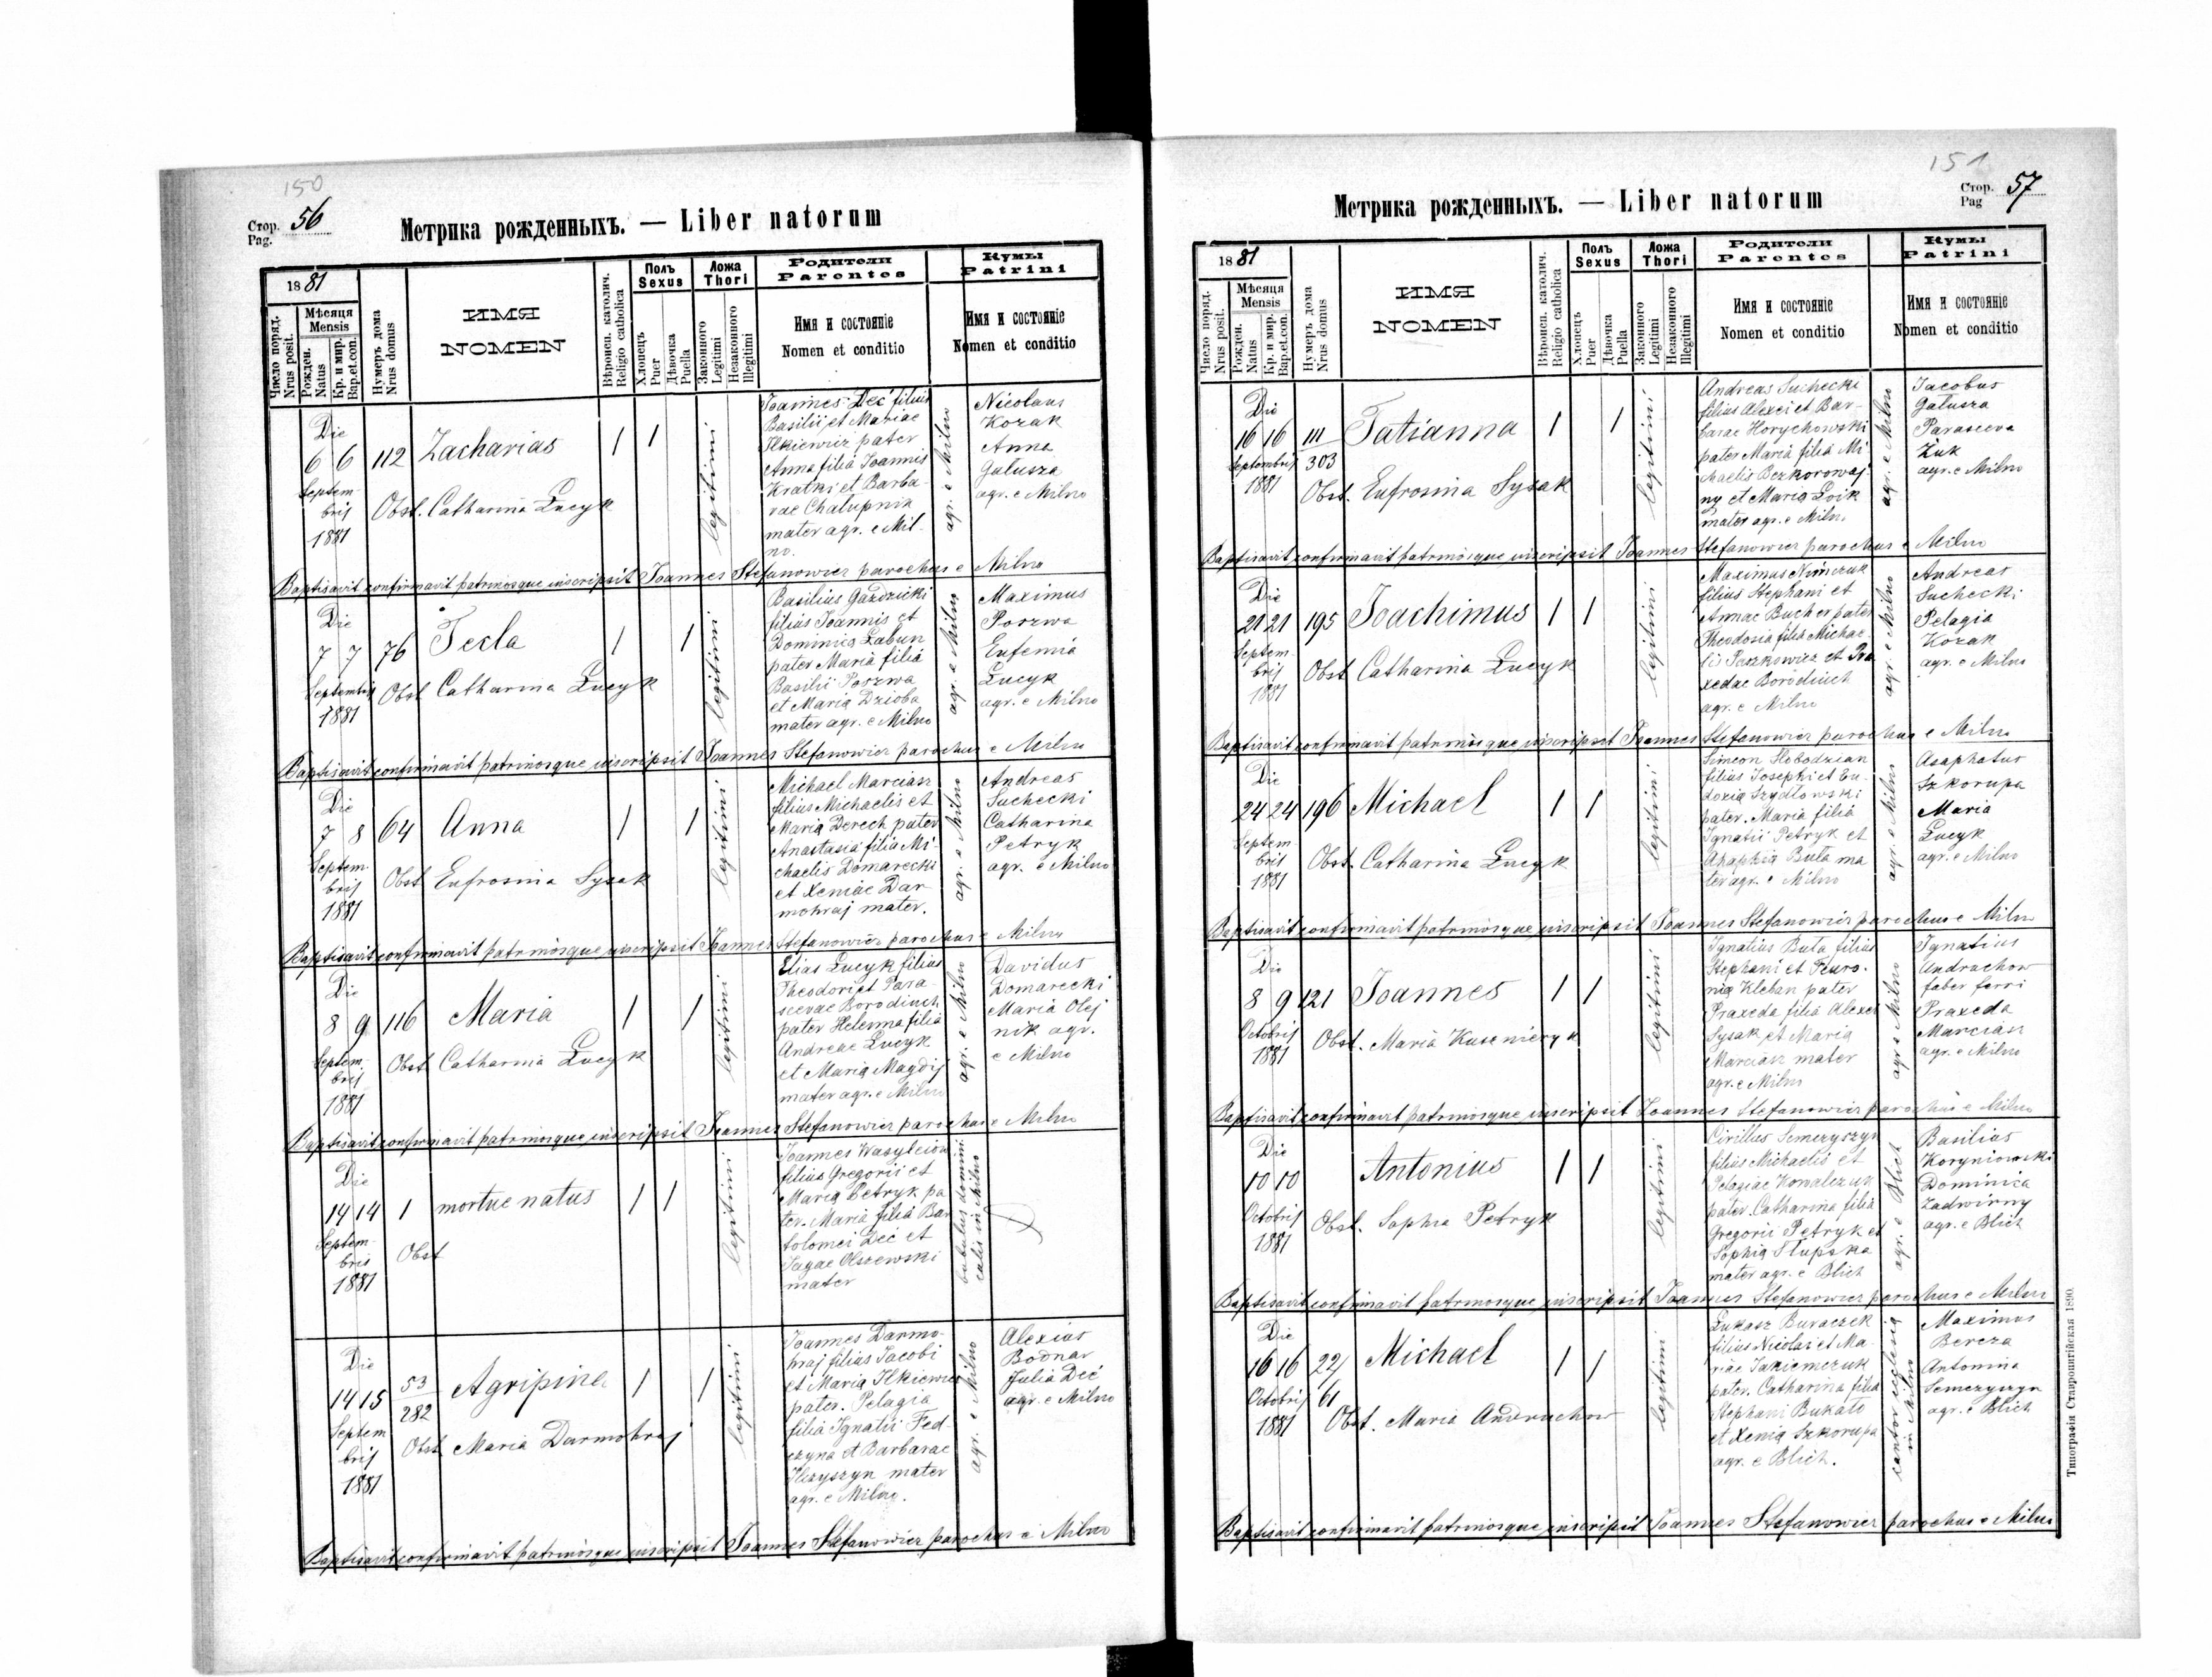 150
Стор. 56
Pag.
Метрика рожденныхъ. — Liber natorum
1881
Число поряд.
Nrus posit.
Мѣсяця
Mensis
Рожден.
Natus
Кр. и мир.
Bap.et.con.
Нумеръ дома
Nrus domus
ИМЯ
NOMEN
Вѣроисп. католич.
Religio catholica
Полъ
Sexus
Хлопецъ
Puer
Дѣвочка
Puella
Ложа
Thori
Законного
Legitimi
Незаконного
Illegitimi
Родители
Parentes
Имя и состоянiе
Nomen et conditio
Кумы
Patrini
Имя и состоянiе
Nomen et conditio
Die
6 6 112 Zacharias 1 1
Septem
bris
1881
Obst. Catharina Łucyk
legitimi
Joannes Dec filius
Basilii et Mariae
Ilkiewicz pater
Anna filia Joannis
Kratki et Barba-
rae Chałupnik
mater agr. e Mil-
no.
agr. e Milno
Nicolaus
Kozak
Anna
Gałusza
agr. e Milno
Baptisavit confirmavit patrinosque inscripsit Joannes Stefanowicz parochus e Milno
Die
7 7 76 Tecla 1 1
Septembris
1881
Obst Catharina Łucyk
legitimi
Basilius Gazdzicki
filius Joannis et
Dominica Łabun
pater Maria filia
Basilii Poszwa
et Maria Dzioba
mater agr. e Milno
agr. e Milno
Maximus
Poszwa
Eufemia
Łucyk
agr. e Milno
Baptisavit confirmavit patrinosque inscripsit Joannes Stefanowicz parochus e Milno
Die
7 8 64 Anna 1 1
Septem-
bris
1881
Obst Eufrosina Sysak
legitimi
Michael Marciasz
filius Michaelis et
Maria Derech pater
Anastasia filia Mi-
chaelis Domarecki
et Xeniae Dar
mohraj mater.
agr. e Milno
Andreas
Suchecki
Catharina
Petryk
agr. e Milno
Baptisavit confirmavit patrinosque inscripsit Joannes Stefanowicz parochus e Milno
Die
8 9 116 Maria 1 1
Septem-
bris
1881
Obst Catharina Łucyk
legitimi
Elias Łucyk filius
Theodori et Para-
scevae Borodiuch
pater Helenna filia
Andreae Łucyk
et Maria Magdij
mater agr. e Milno
agr. e Milno
Davidus
Domarecki
Maria Olej
nik agr.
e Milno
Baptisavit confirmavit patrinosque inscripsit Joannes Stefanowicz parochus e Milno
Die
14 14 1 mortue natus 1 1
Septem-
bris
1881
Obst
legitimi
Joannes Wasylciow
filius Gregorii et
Maria Petryk pa
ter. Maria filia Bar
tolomei Dec et
Jagae Olszewski
mater
bubulus domini
calis in Milno
Die
14 15 53 Agripina 1 1
282
Septem
bris
1881
Obst Maria Darmohraj
legitimi
Joannes Darmo-
hraj filius Jacobi
et Maria Ilkiewicz
pater. Pelagia
filia Ignatii Fed-
czyna et Barbarae
Ilczyszyn mater
agr. e Milno.
agr. e Milno
Alexius
Bodnar
Julia Dec
agr. e Milno
Baptisavit confirmavit patrinosque inscripsit Joannes Stefanowicz parochus e Milno
151
Стор. 57
Pag
Метрика рожденныхъ. — Liber natorum
1881
Число поряд.
Nrus posit.
Мѣсяця
Mensis
Рожден.
Natus
Кр. и мир.
Bap.et.con.
Нумеръ дома
Nrus domus
ИМЯ
NOMEN
Вѣроисп. католич.
Religio catholica
Полъ
Sexus
Хлопецъ
Puer
Дѣвочка
Puella
Ложа
Thori
Законного
Legitimi
Незаконного
Illegitimi
Родители
Parentes
Имя и состоянiе
Nomen et conditio
Кумы
Patrini
Имя и состоянiе
Nomen et conditio
Die
16 16 111 Tatianna 1 1
Septembris 303
1881
Obst. Eufrosina Sysak
legitimi
Andreas Suchecki
filius Alexei et Bar-
barae Horychowski
pater Maria filia Mi-
chaelis Bezkorowaj-
ny et Maria Łoik
mater agr. e Milno
agr. e Milno
Jacobus
Gałusza
Parasceva
Żuk
agr. e Milno
Baptisavit confirmavit patrinosque inscripsit Joannes Stefanowicz parochus e Milno
Die
21 21 195 Joachimus 1 1
Septem-
bris
1881
Obst Catharina Łucyk
legitimi
Maximus Nimczuk
filius Stephani et
Annae Bucher pater
Theodosia filia Michae-
lis Paszkowicz et Pra
xedae Borodiuch
agr. e Milno
agr. e Milno
Andreas
Suchecki
Pelagia
Kozak
agr. e Milno
Baptisavit confirmavit patrinosque inscripsit Joannes Stefanowicz parochus e Milno
Die
24 24 196 Michael 1 1
Septem
bris
1881
Obst. Catharina Łucyk
legitimi
Simeon Hobodzian
filius Josephi et Eu-
doxia Szydłowski
pater. Maria filia
Ignatii Petryk et
Ahaphia Buta ma
ter agr. e Milno
agr. e Milno
Asaphatus
Szkorupa
Maria
Łucyk
agr. e Milno
Baptisavit confirmavit patrinosque inscripsit Joannes Stefanowicz parochus e Milno
Die
8 9 121 Joannes 1 1
Octobris
1881
Obst. Maria Kuszniryk
legitimi
Ignatius Buta filius
Stephani et Feuro-
nia Kleban pater
Praxeda filia Alexei
Sysak et Maria
Marciasz mater
agr. e Milno
agr e Milno
Ignatius
Andrachow
faber ferri
Praxeda
Marciasz
agr. e Milno
Baptisavit confirmavit patrinosque inscripsit Joannes Stefanowicz parochus e Milno
Die
10 10 Antonius 1 1
Octobris
1881
Obst. Sophia Petryk
legitimi
Cirillus Semczyszyn
filius Michaelis et
Pelagiae Kowalczuk
pater. Catharina filia
Gregorii Petryk et
Sophia Słupska
mater agr. e Blich
agr. e Blich
Basilius
Koryniowski
Dominica
Zadwirny
agr. e Blich
Baptisavit confirmavit patrinosque inscripsit Joannes Stefanowicz parochus e Milno
Die
16 16 22/ Michael 1 1
Octobris 61
1881
Obst. Maria Andruchow
legitimi
Łukasz Buraczek
filius Nicolai et Ma-
riae
pater. Catharina filia
Stephani Bukato
et Xenia Szkorupa
agr. e Blich.
cantor ecclesia
in Milno
Maximus
Bereza
Antonina
Semczyszyn
agr. e Blich
Baptisavit confirmavit patrinosque inscripsit Joannes Stefanowicz parochus e Milno
Типографія Ставропигійская 1890.